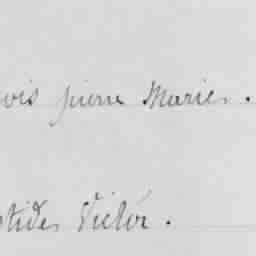 ouis pierre Marie.
stides Victor.